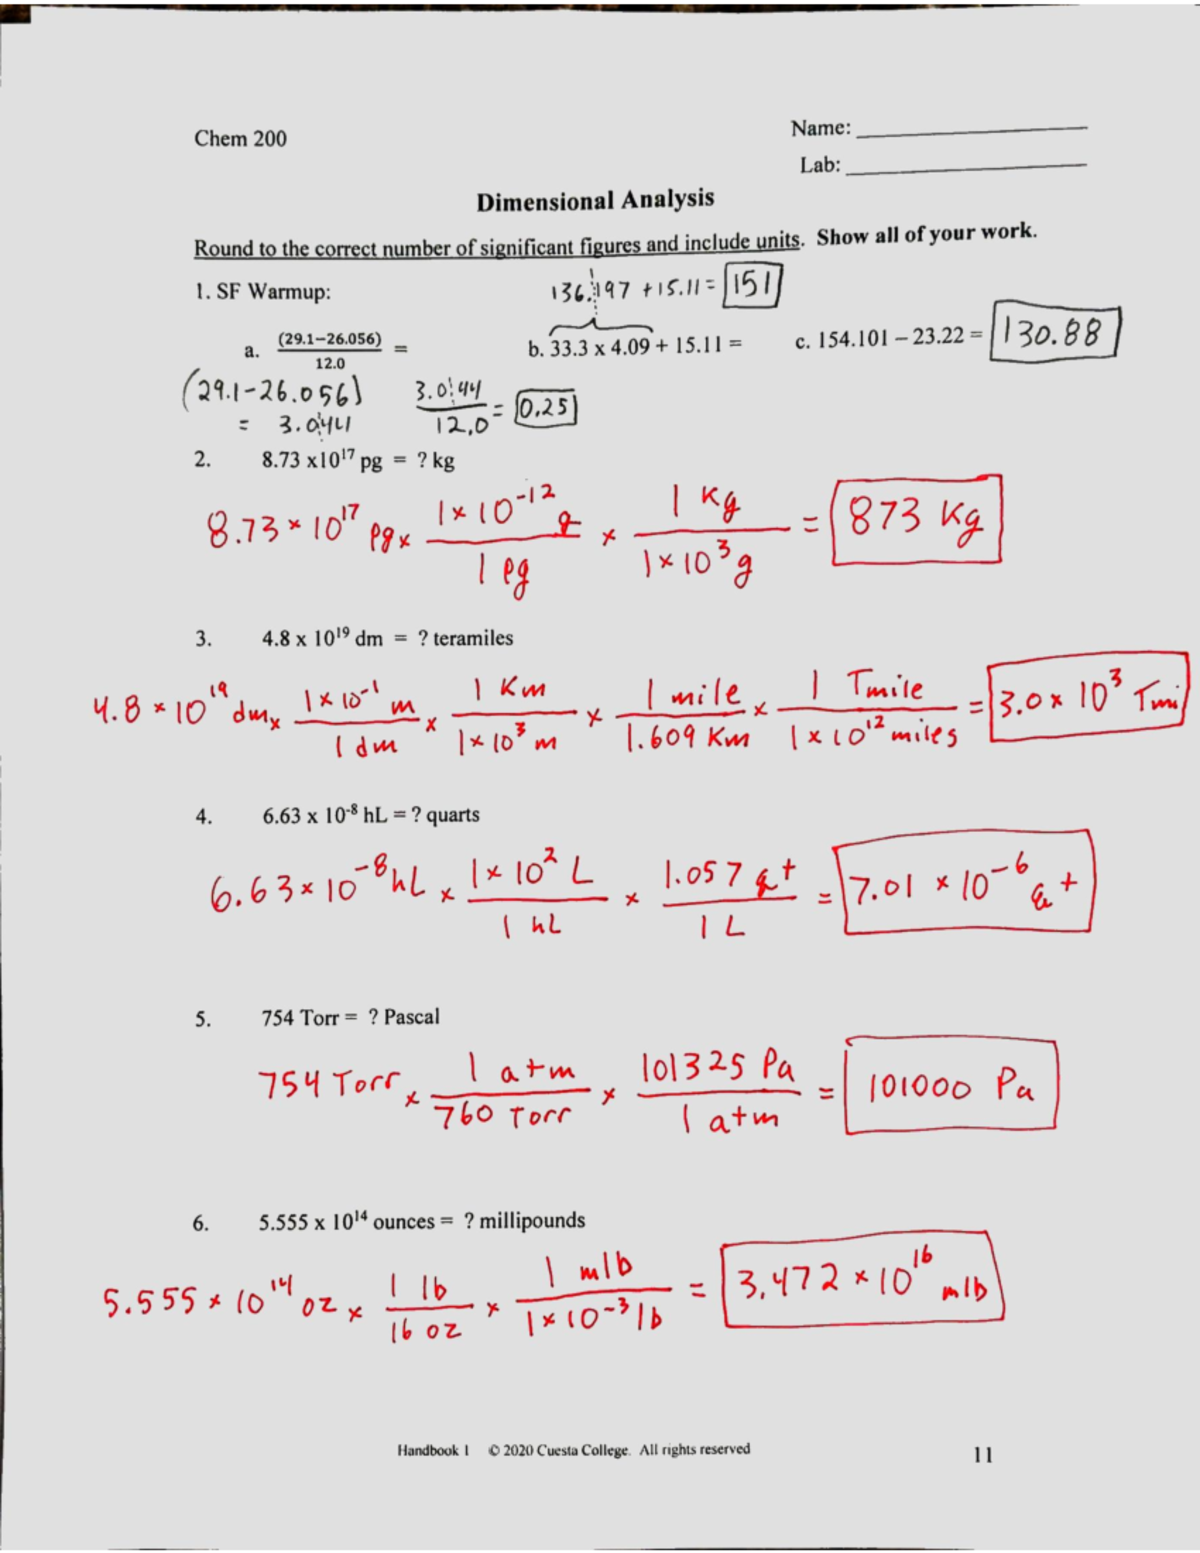 Chem 200
Name:
Lab:
Dimensional Analysis
Round to the correct number of significant figures and include units. Show all of your work.
1. SF Warmup:
136.197 + 15.11 = 151
a. (29.1−26.056) / 12.0 =
b. 33.3 x 4.09 + 15.11 =
c. 154.101 − 23.22 = 130.88
(29.1-26.056) = 3.044
3.044 / 12.0 = 0.25
2. 8.73 x10¹⁷ pg = ? kg
8.73 × 10¹⁷ pg × 1 × 10⁻¹² g / 1 pg × 1 Kg / 1 × 10³ g = 873 Kg
3. 4.8 x 10¹⁹ dm = ? teramiles
4.8 × 10¹⁹ dm × 1 × 10⁻¹ m / 1 dm × 1 Km / 1 × 10³ m × 1 mile / 1.609 Km × 1 Tmile / 1 × 10¹² miles = 3.0 × 10³ Tmi
4. 6.63 x 10⁻⁸ hL = ? quarts
6.63 × 10⁻⁸ hL × 1 × 10² L / 1 hL × 1.057 qt / 1 L = 7.01 × 10⁻⁶ qt
5. 754 Torr = ? Pascal
754 Torr × 1 atm / 760 Torr × 101325 Pa / 1 atm = 101000 Pa
6. 5.555 x 10¹⁴ ounces = ? millipounds
5.555 × 10¹⁴ oz × 1 lb / 16 oz × 1 mlb / 1 × 10⁻³ lb = 3.472 × 10¹⁶ mlb
Handbook 1 © 2020 Cuesta College. All rights reserved
11